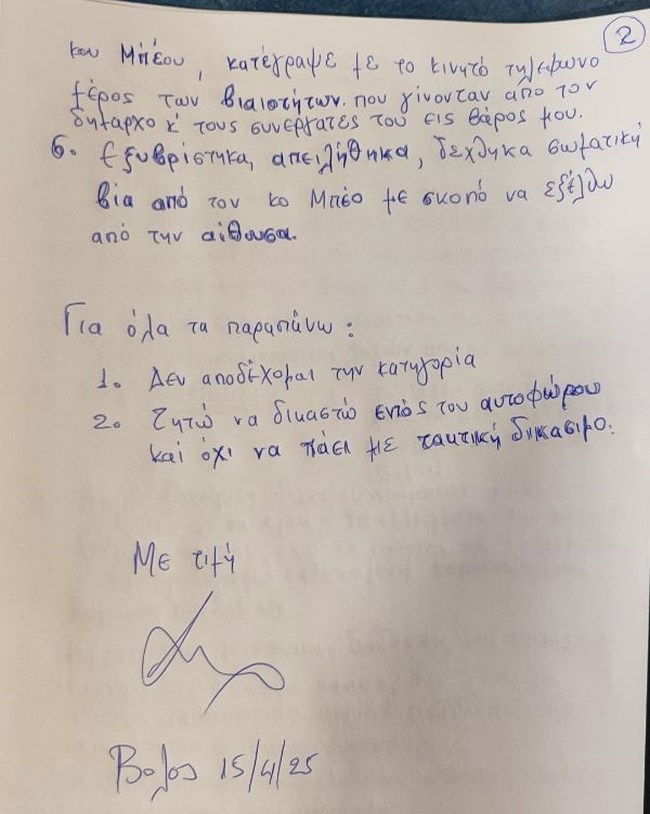 2
κου Μπέου, κατέγραψε με το κινητό τηλέφωνο
μέρος των βιαιοτήτων. που γίνονταν από τον
δήμαρχο κ' τους συνεργάτες του εις βάρος μου.
6. Εξυβρίστηκα, απειλήθηκα, δέχθηκα σωματική
βία από τον κο Μπέο με σκοπό να εξέλθω
από την αίθουσα.
Για όλα τα παραπάνω:
1. Δεν αποδέχομαι την κατηγορία
2. Ζητώ να δικαστώ εντός του αυτοφώρου
και όχι να πάει με τακτική δικάσιμο.
Με τιμή
Βολος 15/4/25